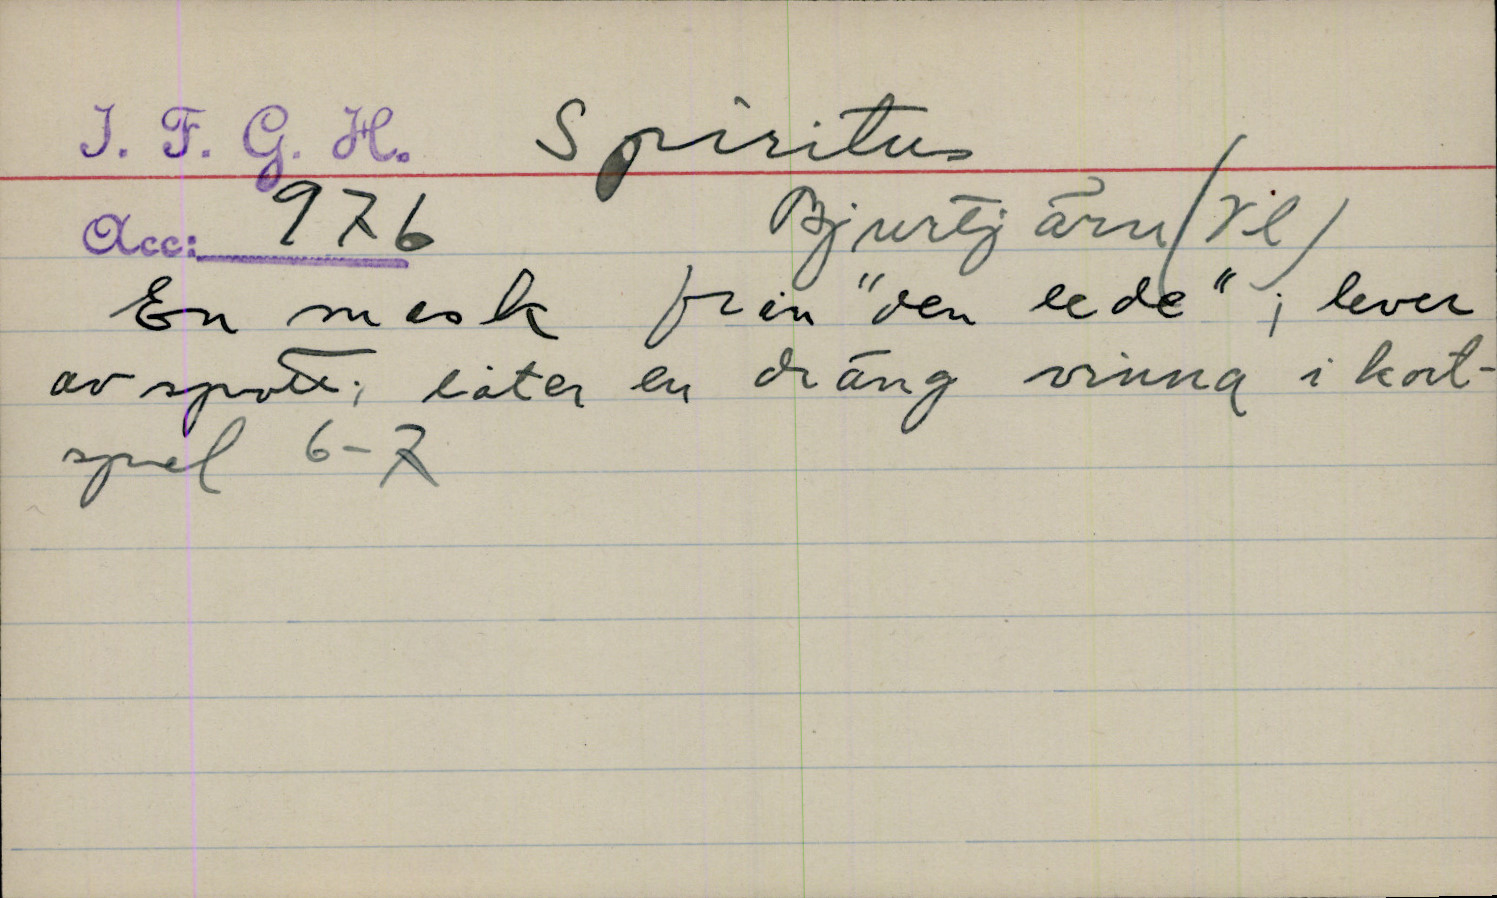 I. F. G. H. Spiritus
Acc: 976 Bjurtjärn (Vl)
En mask från "den lede"; lever
av spott; låter en dräng vinna i kort-
spel 6-7